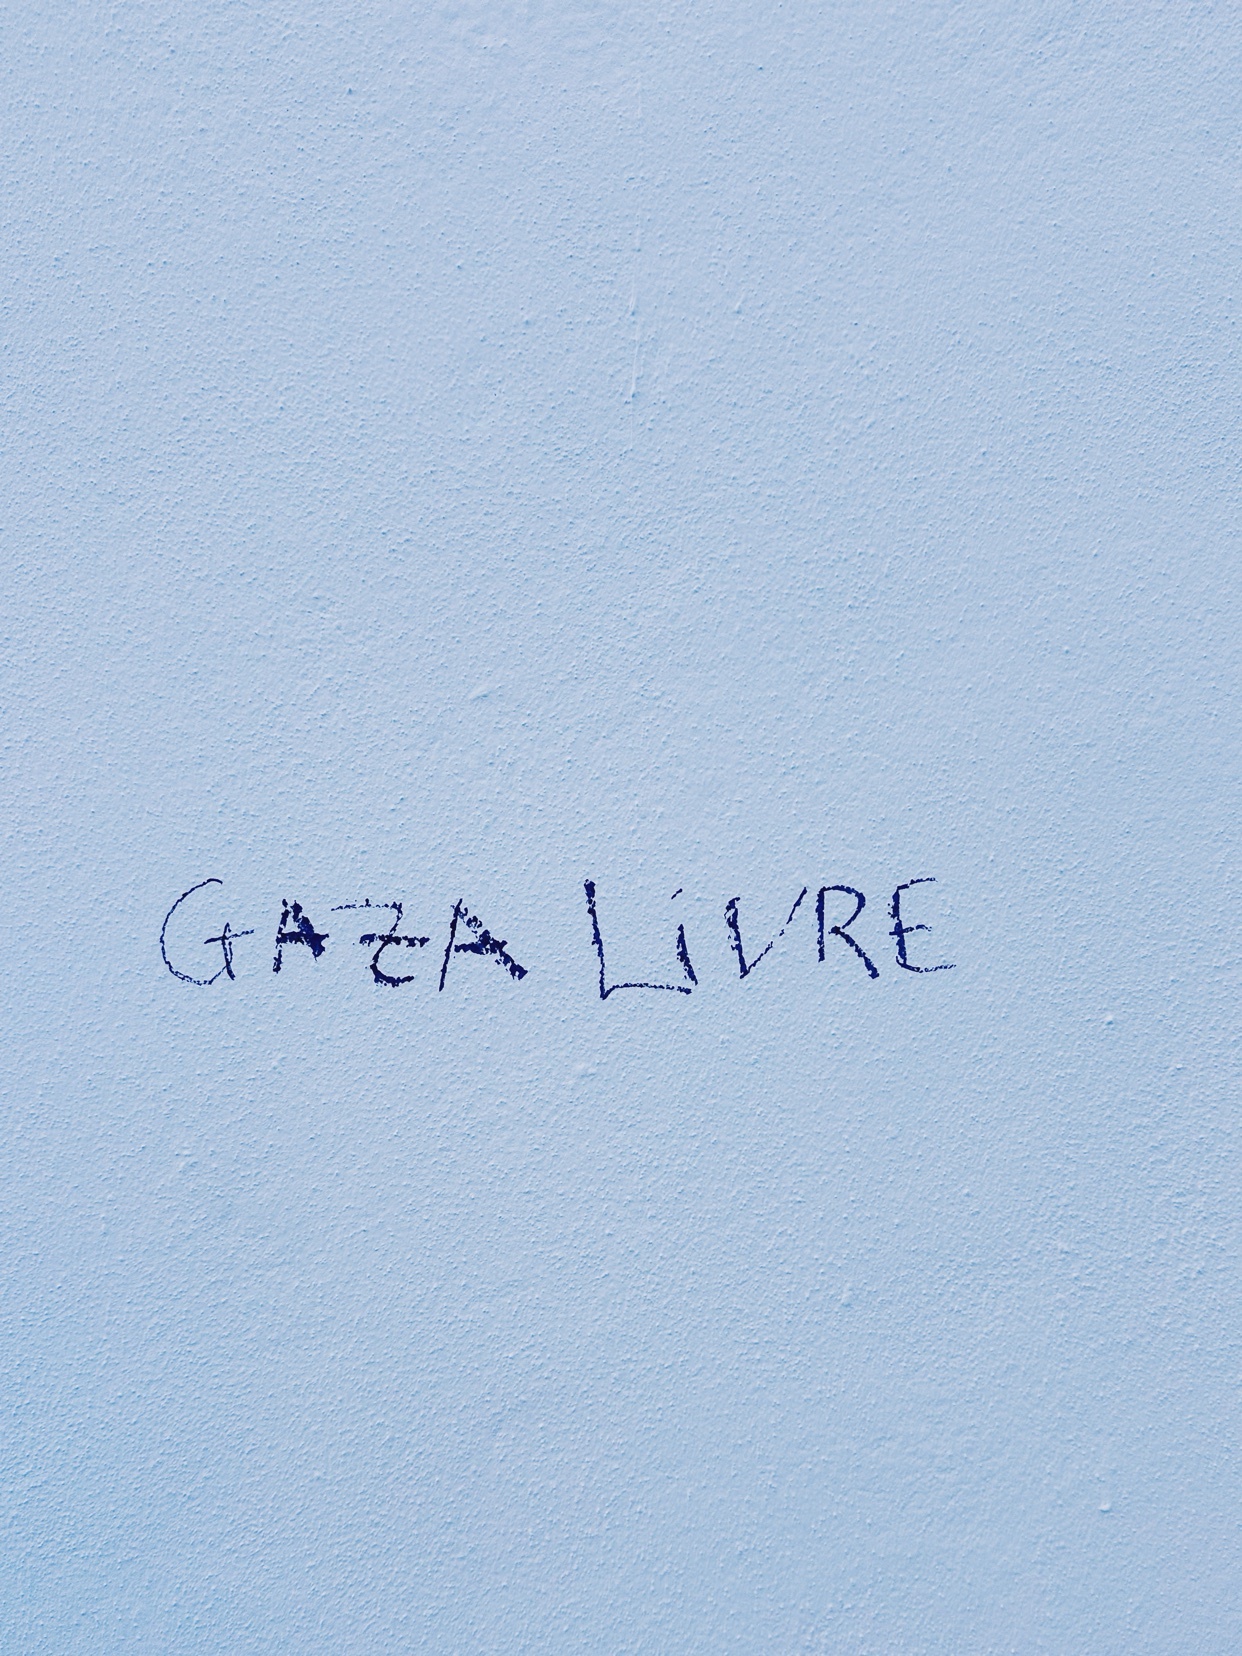 GAZA LiVRE